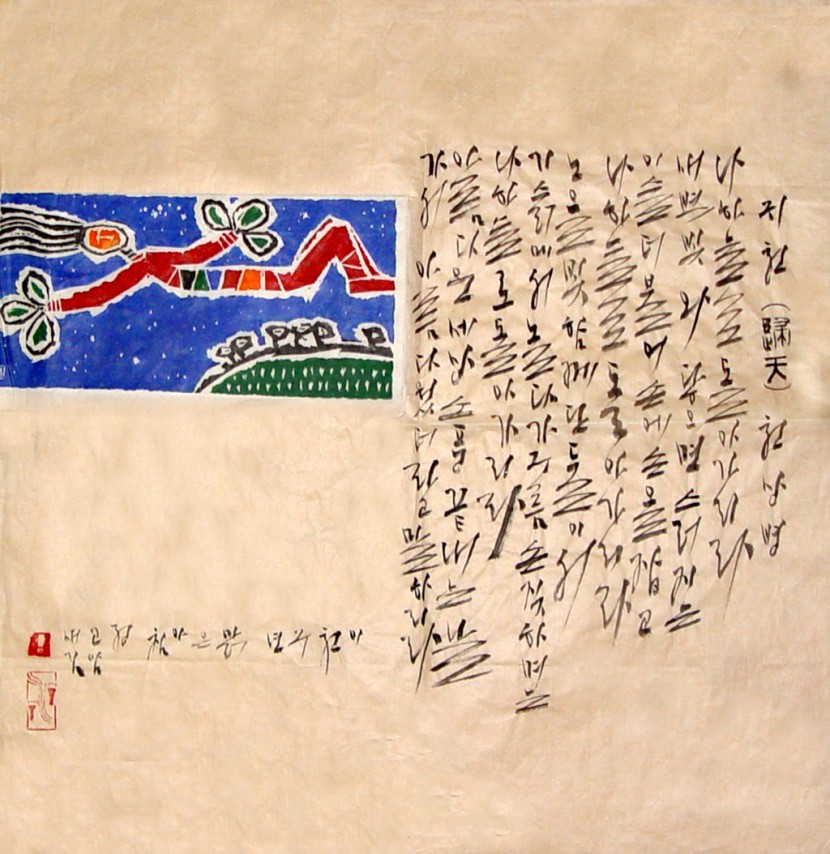 귀천 (歸天) 천상병
나 하늘로 돌아가리라
새벽빛 와 닿으면 스러지는
이슬 더불어 손에 손을 잡고
나 하늘로 돌아가리라
노을빛 함께 단 둘이서
기슭에서 놀다가 구름 손짓하며는
나 하늘로 돌아가리라
아름다운 세상 소풍 끝내는 날
가서 아름다웠더라고 말하리라
이천구년 맑은 아침